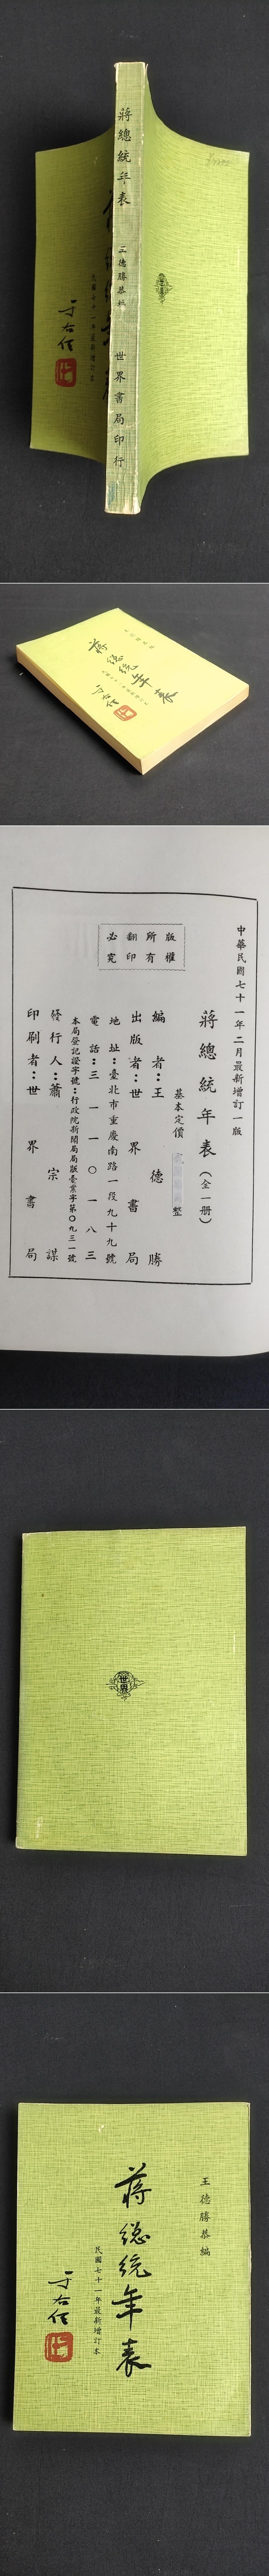 蔣總統年表
王德勝恭編
世界書局印行
民國七十一年最新增訂本
于右任
蔣總統年表
于右任
中華民國七十一年二月最新增訂一版
蔣總統年表（全一冊）
基本定價
整
編者：王德勝
出版者：世界書局
地址：臺北市重慶南路一段九十九號
電話：三一一〇一八三
本局登記證字號：行政院新聞局局版臺業字第〇九三一號
發行人：蕭宗謀
印刷者：世界書局
版權
所有
翻印
必究
世界
王德勝恭編
蔣總統年表
民國七十一年最新增訂本
于右任